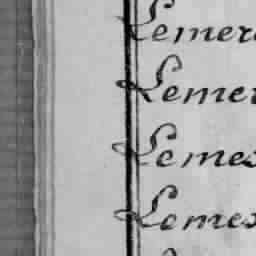 Lemer
Lemer
Lemes
Lemes